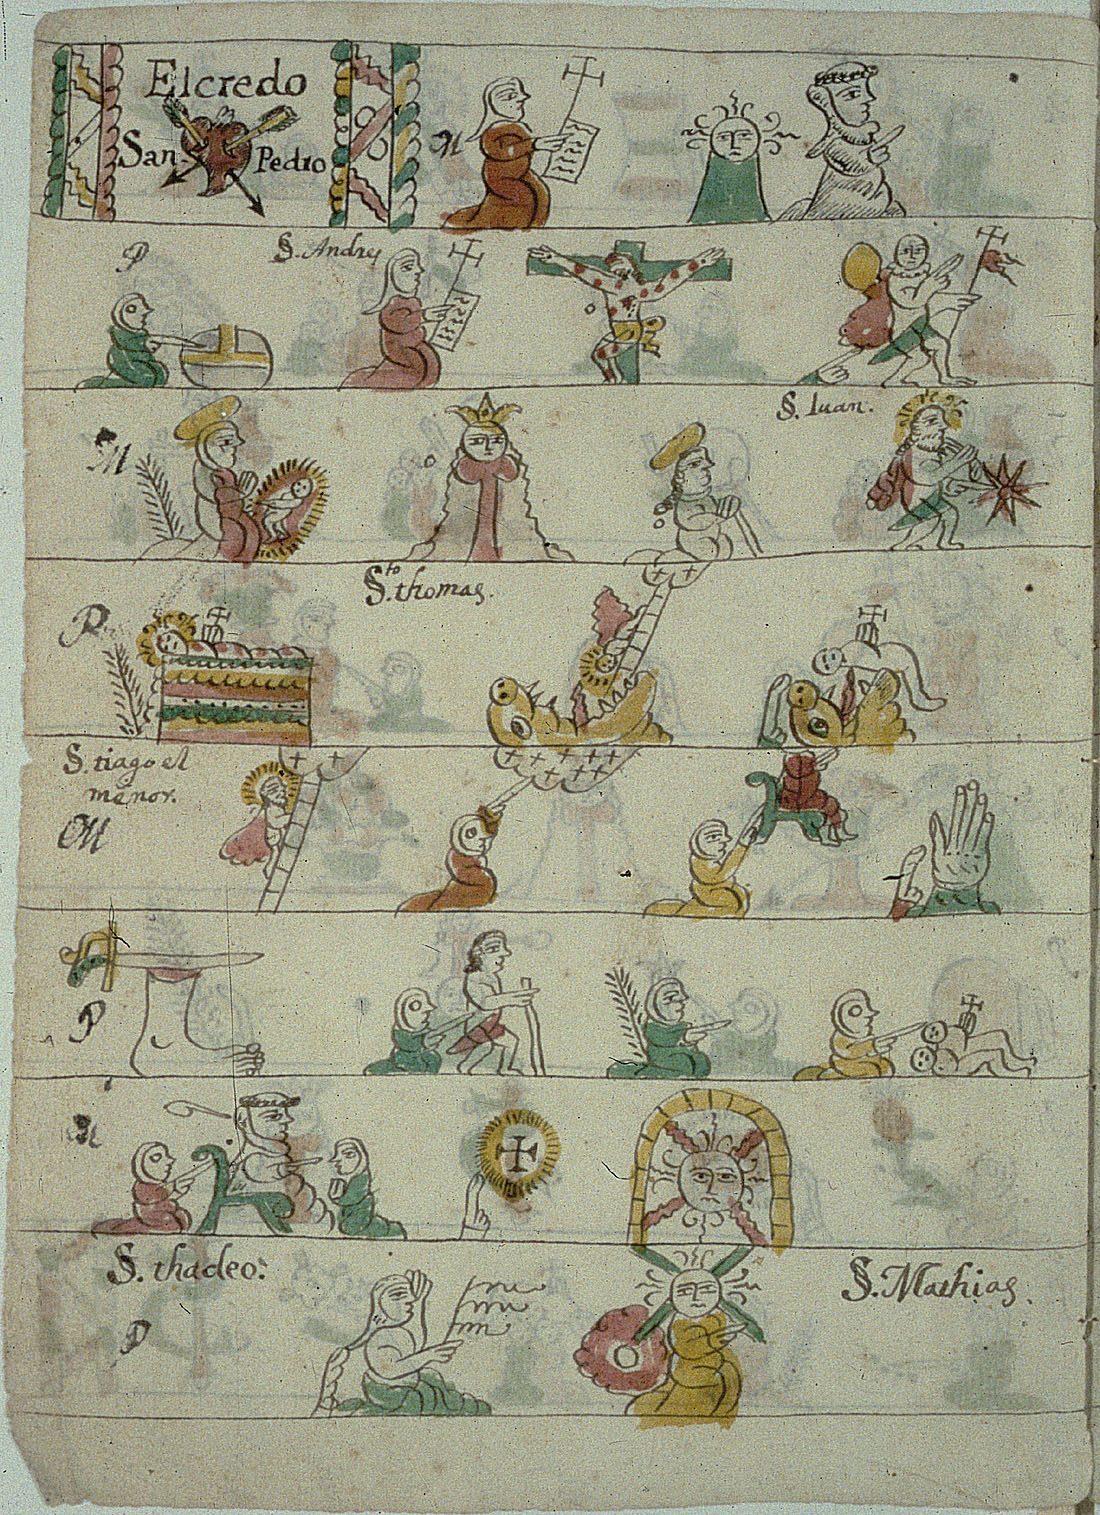 El credo
San Pedro
M
P
S. Andres
M
S. Juan.
P
Sto. thomas.
S. tiago el
menor.
M
P
M
S. thadeo.
S. Mathias.
P